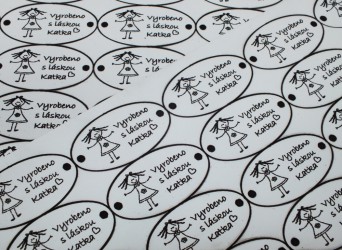 Vyrobeno
s láskou
Katka
Vyrobeno
s láskou
Katka
Vyrobeno
s láskou
Katka
Vyrobeno
s láskou
Katka
Vyrobeno
s láskou
Katka
Vyrobeno
s láskou
Katka
Vyrobeno
s láskou
Katka
Vyrobeno
s láskou
Katka
Vyrobeno
s láskou
Katka
Vyrobeno
s láskou
Katka